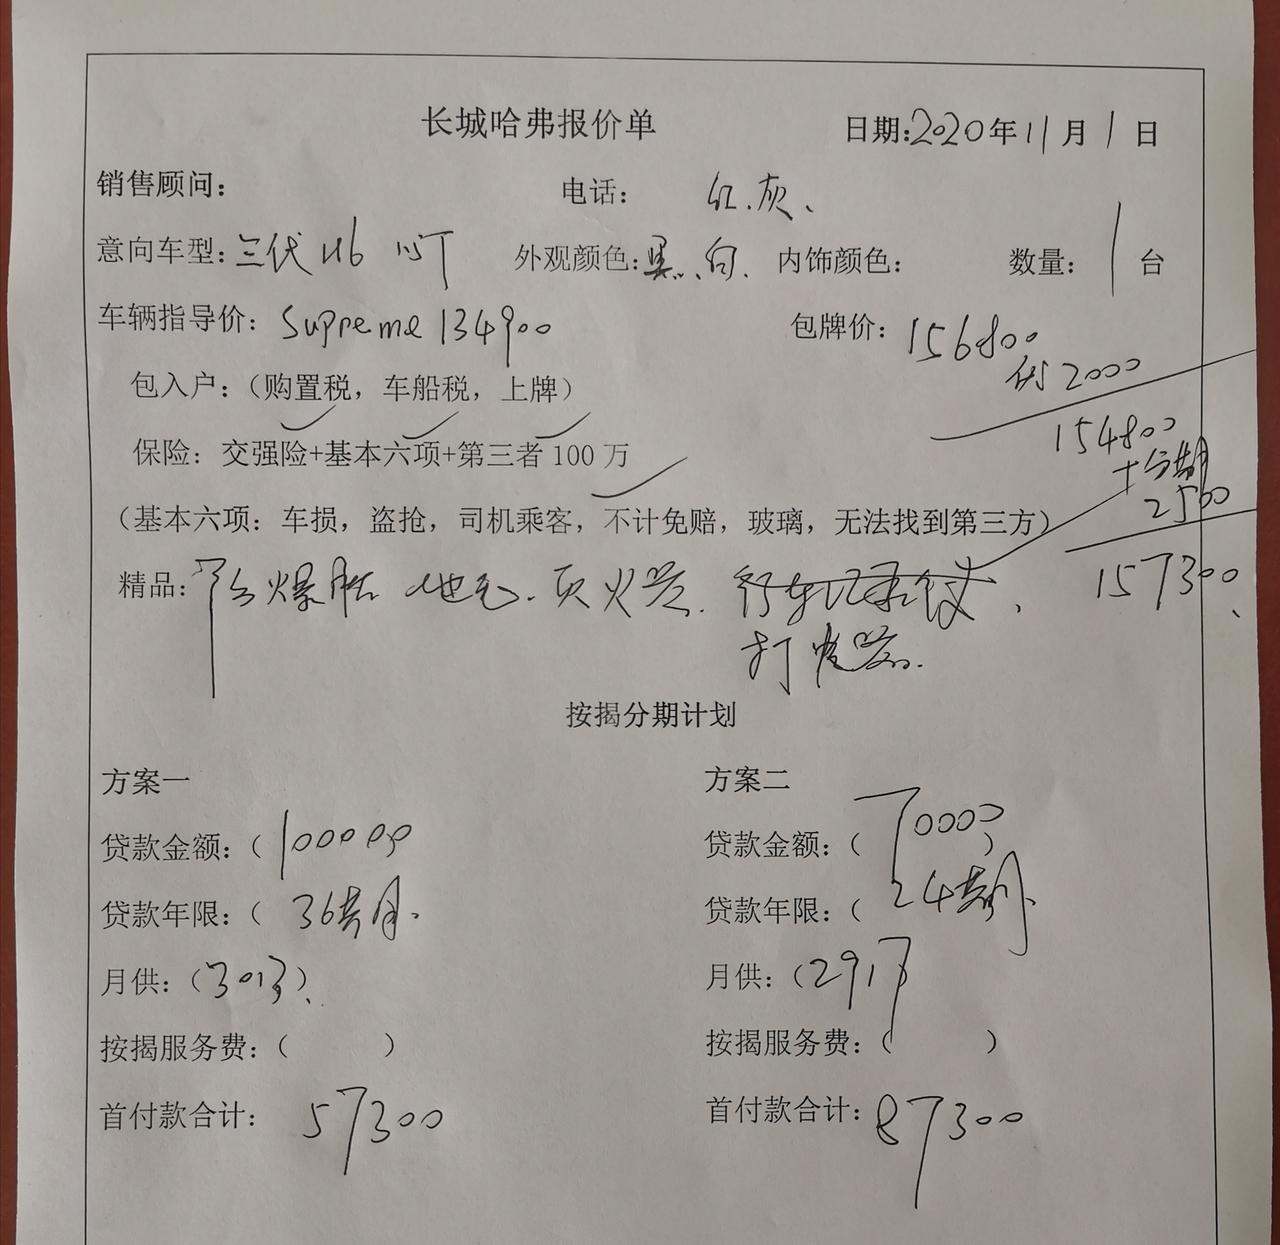 长城哈弗报价单 日期:2020年11月1日
销售顾问: 电话: 红.灰、
意向车型:三代H6 外观颜色:黑、白、 内饰颜色: 数量: 1 台
车辆指导价: Supreme 134900 包牌价: 156800
优2000
包入户:(购置税,车船税,上牌)
154800
保险: 交强险+基本六项+第三者100万
+分期
2500
(基本六项: 车损, 盗抢, 司机乘客, 不计免赔, 玻璃, 无法找到第三方)
157300
精品: 防爆膜 地毯. 灭火器. 行车记录仪、
打火器.
按揭分期计划
方案一 方案二
贷款金额:( 100000 贷款金额:( 70000 )
贷款年限:( 36期. 贷款年限:( 24期.
月供:(3013)、 月供:(2917
按揭服务费:( ) 按揭服务费:( )
首付款合计: 57300 首付款合计: 87300